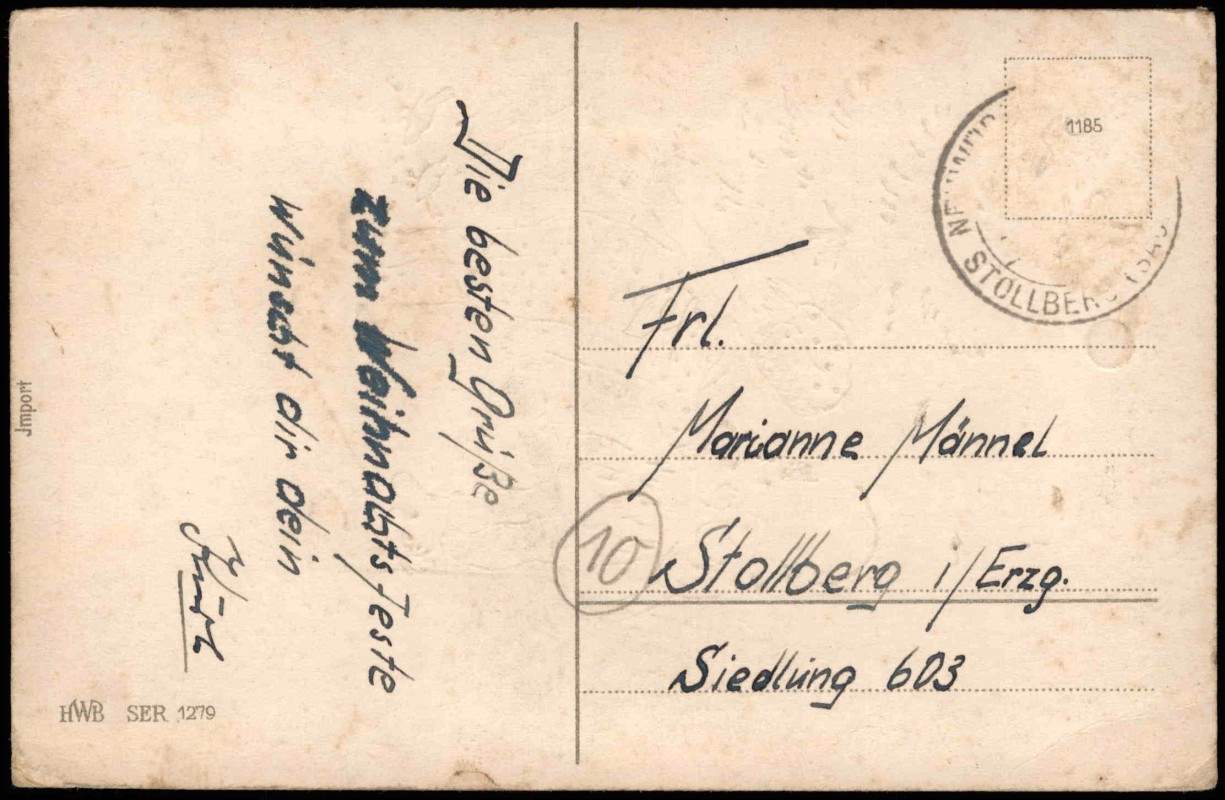 Die besten Grüße
zum Weihnachtsfeste
wünscht dir dein
1185
STOLLBERG (SAC
Frl.
Marianne Männel
10
Stollberg i/Erzg.
Siedlung 603
Jmport
HWB SER 1279